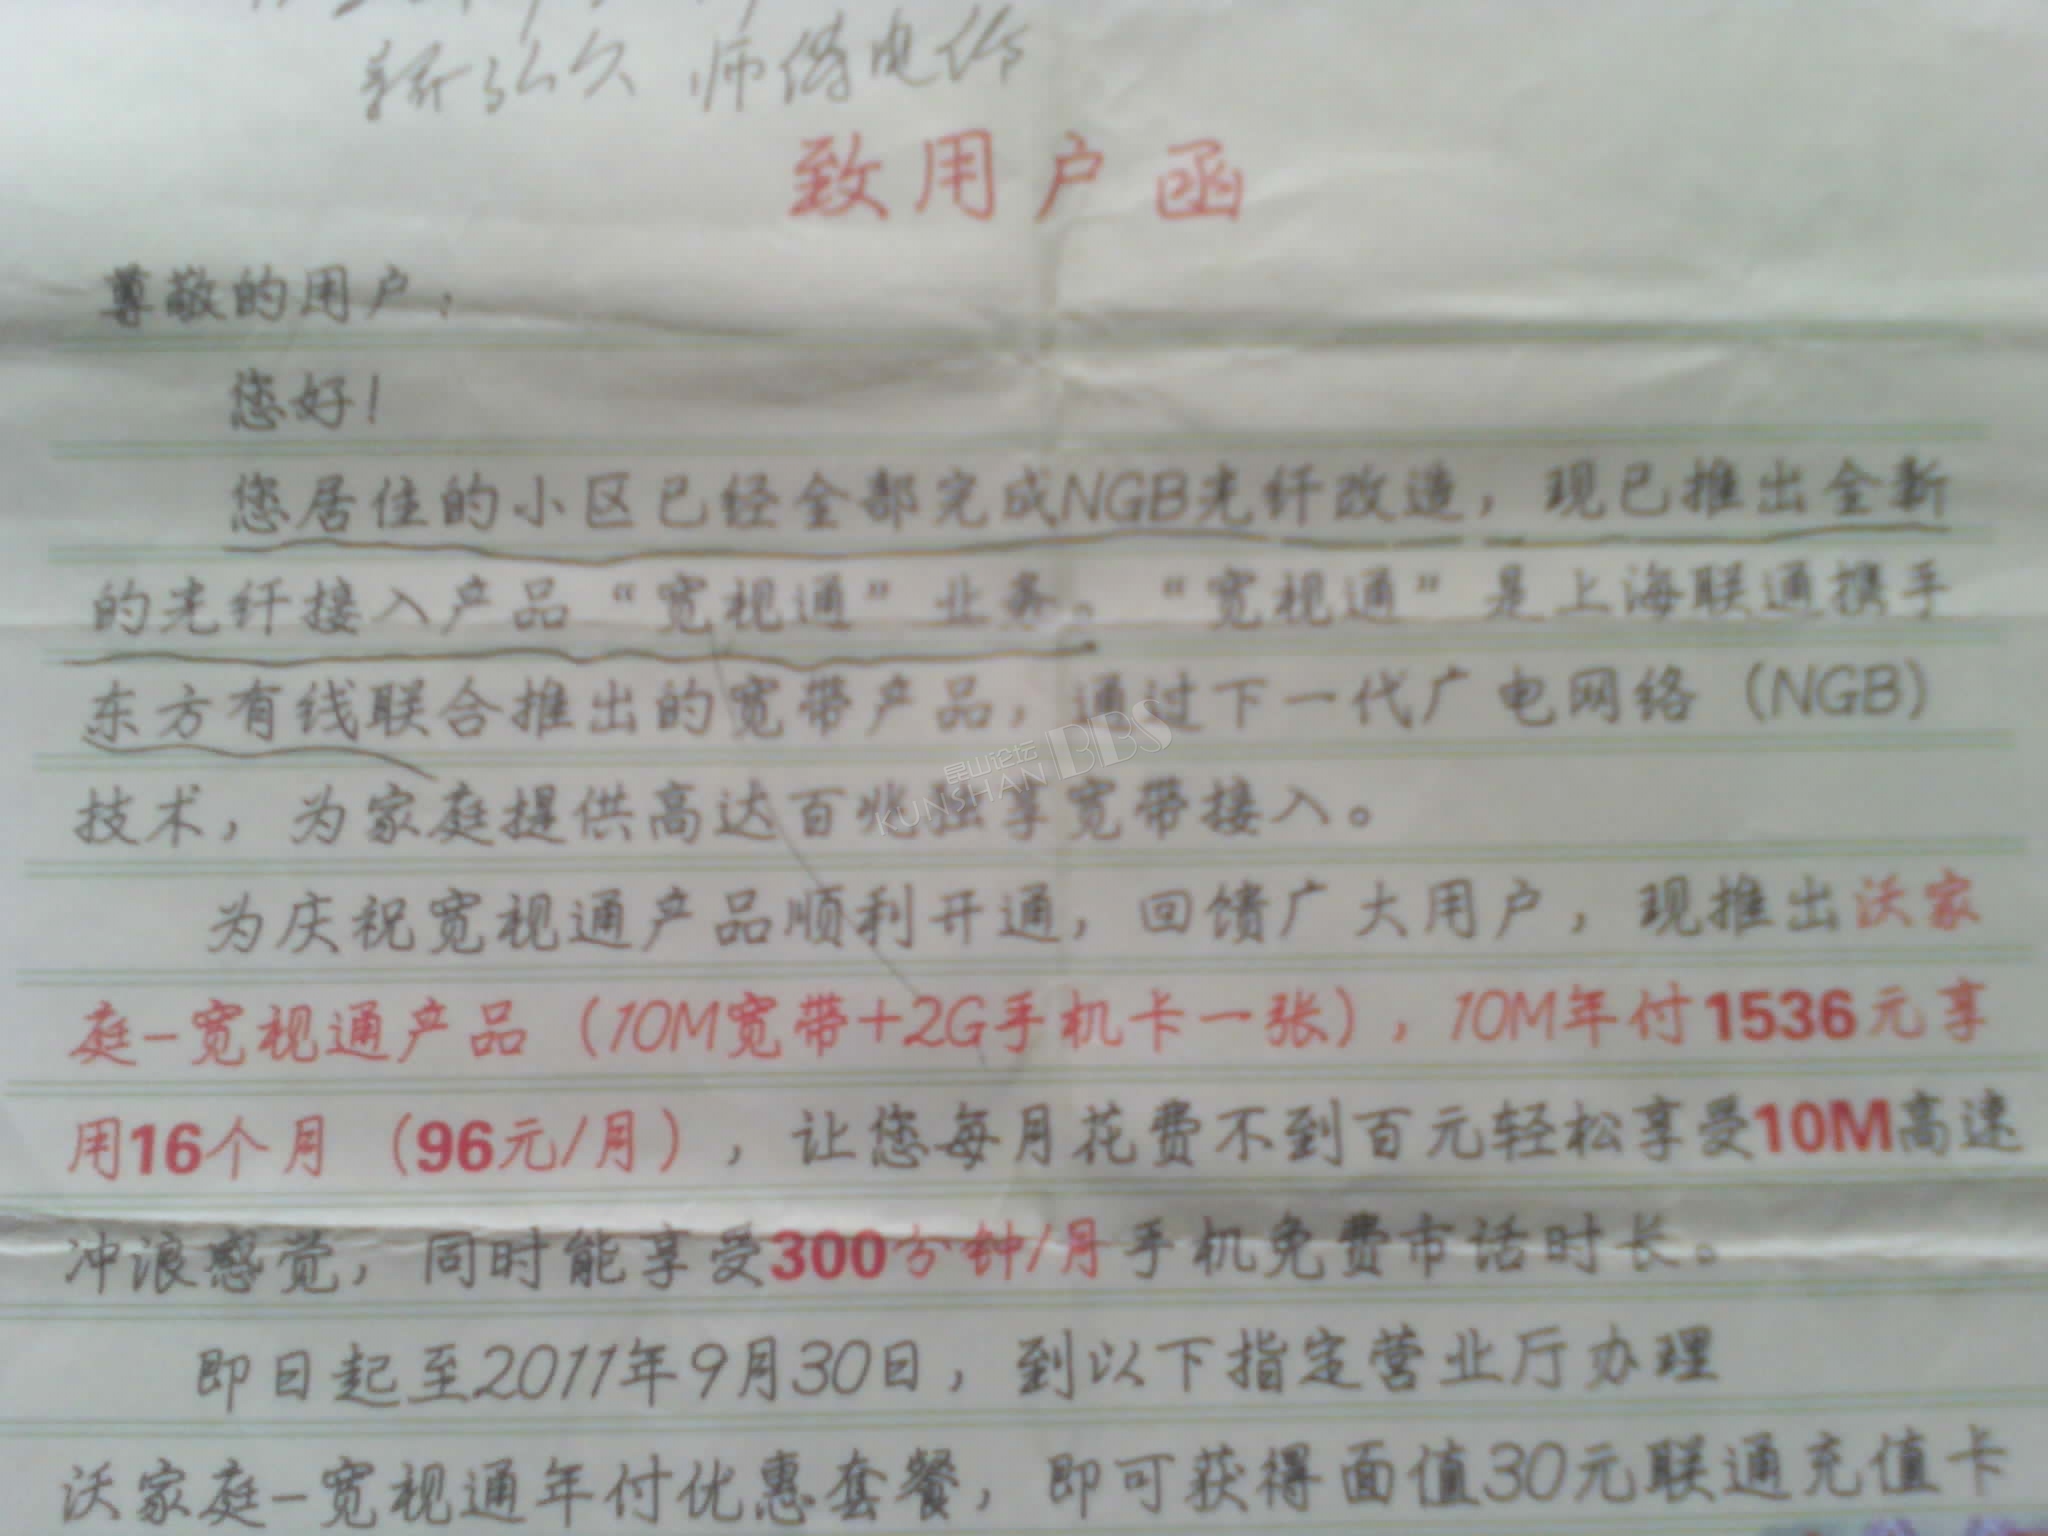 致用户函
尊敬的用户：
您好！
您居住的小区已经全部完成NGB光纤改造，现已推出全新
的光纤接入产品“宽视通”业务。“宽视通”是上海联通携手
东方有线联合推出的宽带产品，通过下一代广电网络（NGB）
昆山论坛
KUNSHAN BBS
技术，为家庭提供高达百兆独享宽带接入。
为庆祝宽视通产品顺利开通，回馈广大用户，现推出沃家
庭-宽视通产品（10M宽带+2G手机卡一张），10M年付1536元享
用16个月（96元/月），让您每月花费不到百元轻松享受10M高速
冲浪感觉，同时能享受300分钟/月手机免费市话时长。
即日起至2011年9月30日，到以下指定营业厅办理
沃家庭-宽视通年付优惠套餐，即可获得面值30元联通充值卡